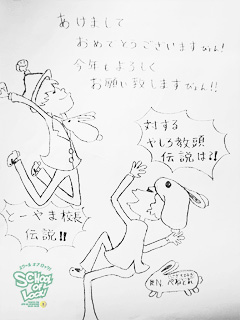 あけまして
おめでとうございますぴょん!
今年もよろしく
お願い致しますぴょん!!
対する
やしろ教頭
伝説は?!
とーやま校長
伝説!!
SCHOOL
OF
LOCK!
RN